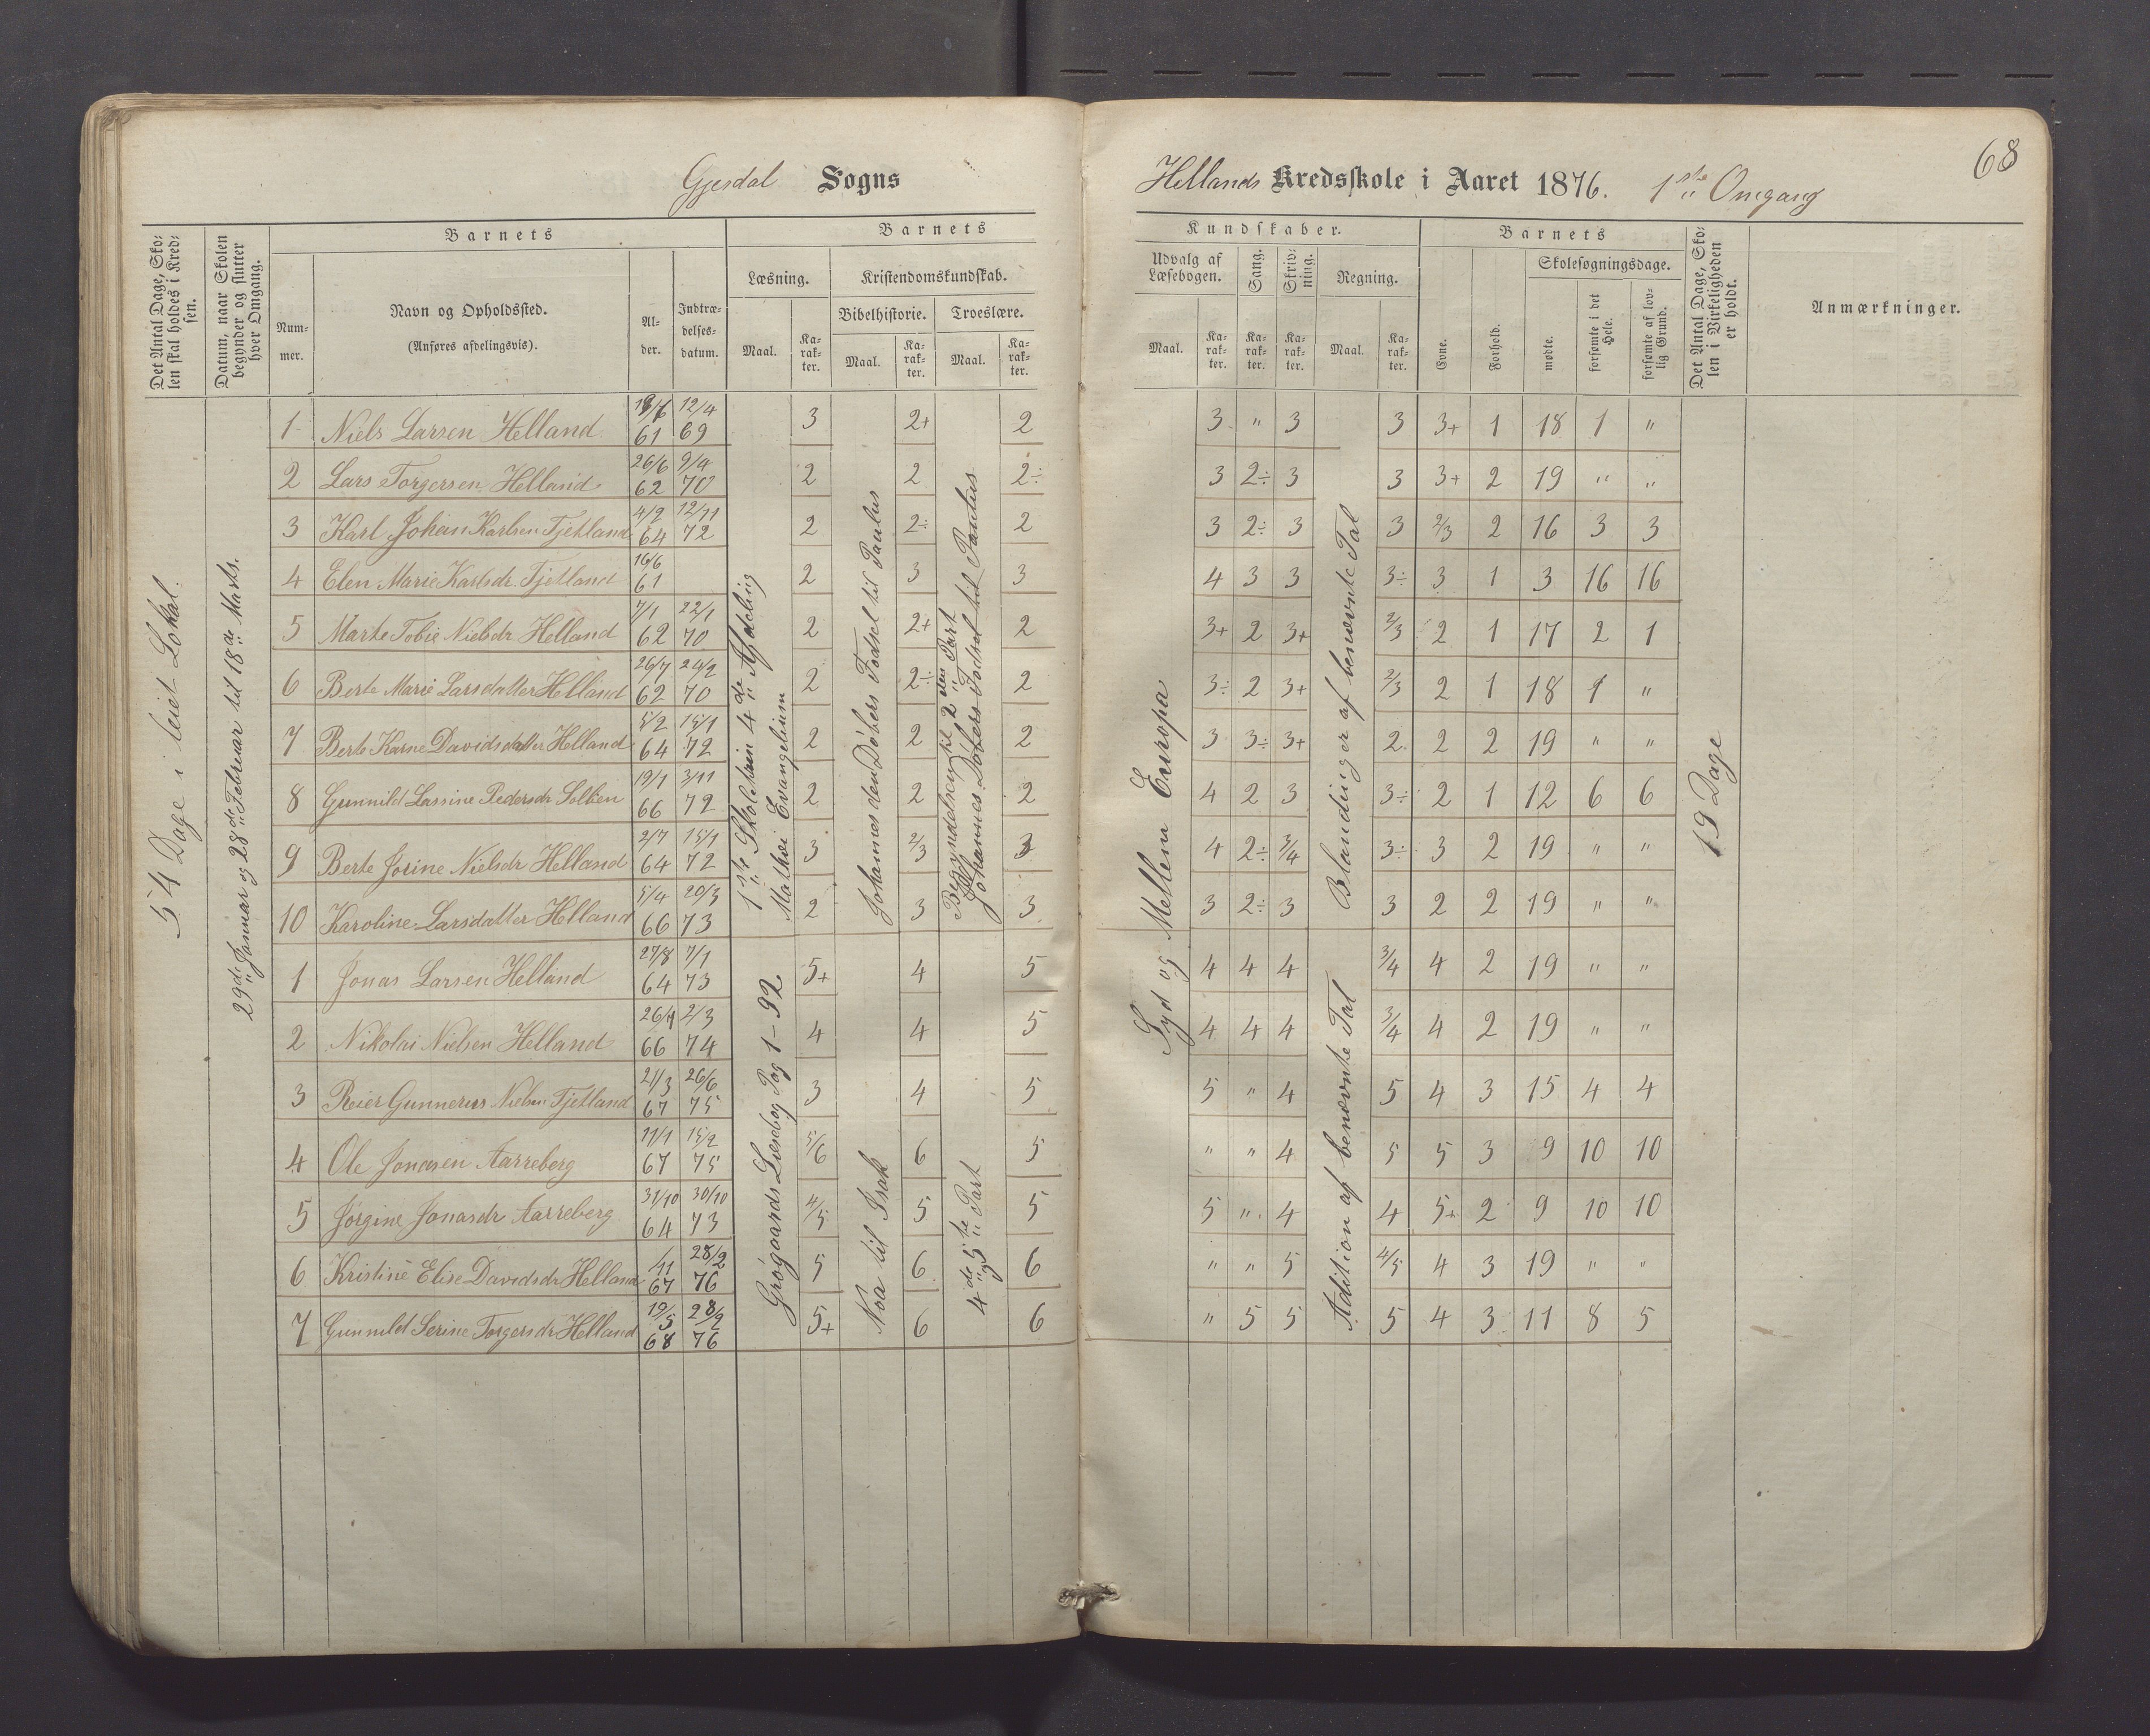 68
Gjesdal Sogns Hellands Kredsskole i Aaret 1876. 1ste Omgang
Det Antal Dage, Skolen skal holdes i Kredsen.
Datum, naar Skolen begynder og slutter hver Omgang.
Barnets
Nummer.
Navn og Opholdssted.
(Anføres afdelingsvis).
Alder.
Indtrædelsesdatum.
Barnets Kundskaber.
Læsning.
Maal.
Karakter.
Kristendomskundskab.
Bibelhistorie.
Maal.
Karakter.
Troeslære.
Maal.
Karakter.
Udvalg af Læsebogen.
Maal.
Karakter.
Sang.
Karakter.
Skrivning.
Karakter.
Regning.
Maal.
Karakter.
Barnets
Evne.
Forhold.
Skolesøgningsdage.
mødte.
forsømte i det Hele.
forsømte af lovlig Grund.
Det Antal Dage, Skolen i Virkeligheden er holdt.
Anmærkninger.
54 Dage i leiet Lokal.
29de Januar og 28de Februar til 18de Marts.
1ste Skoletrin 4de Afdeling
Mathæi Evangelium
Johannes den Døbers Fødsel til Paulus
Begyndelsen til 2den Part
Johannes Døbers Fødsel til Paulus
Syd og Mellem Europa
Blandinger af benævnte Tal
19 Dage
1 Niels Larsen Helland 19/6 61 12/4 69 3 2+ 2 3 " 3 3 3+ 1 18 1 "
2 Lars Torgersen Helland 26/6 62 9/4 70 2 2 2÷ 3 2÷ 3 3 3+ 2 19 " "
3 Karl Johan Karlsen Tjetland 4/2 64 12/11 72 2 2÷ 2 3 2÷ 3 3 2/3 2 16 3 3
4 Elen Marie Karlsdr. Tjetland 16/6 61 2 3 3 4 3 3 3÷ 3 1 3 16 16
5 Marte Tobie Nielsdr Helland 7/1 62 22/1 70 2 2+ 2 3+ 2 3+ 2/3 2 1 17 2 1
6 Berte Marie Larsdatter Helland 26/7 62 24/2 70 2 2÷ 2 3÷ 2 3+ 2/3 2 1 18 1 "
7 Berte Karne Davidsdatter Helland 5/2 64 15/1 72 2 2 2 3 3÷ 3+ 2 2 2 19 " "
8 Gunnild Lassine Pedersdr 19/1 66 3/11 72 2 2 2 4 2 3 3÷ 2 1 12 6 6
9 Berte Jorine Nielsdr Helland 2/7 64 15/1 72 3 2/3 3 4 2÷ 3/4 3÷ 3 2 19 " "
10 Karoline Larsdatter Helland 5/4 66 20/3 73 2 3 3 3 2÷ 3 3 2 2 19 " "
Grøgaards Læsebog Pag 1-92
Noa til Isak
4de og 5te Part
Adition af benævnte Tal
1 Jonas Larsen Helland 27/8 64 7/1 73 5+ 4 5 4 4 4 3/4 4 2 19 " "
2 Nikolai Nielsen Helland 66 2/3 74 4 4 5 4 4 4 3/4 4 2 19 " "
3 Reier Gunnerus Nielsen Tjetland 21/3 67 26/6 75 3 4 5 5 " 4 5 4 3 15 4 4
4 Ole Jonasen Aarreberg 11/1 67 15/2 75 5/6 6 5 " " 4 5 5 3 9 10 10
5 Jørgine Jonasdr Aarreberg 31/10 64 30/10 73 4/5 5 5 5 " 4 4 5+ 2 9 10 10
6 Kristine Elise Davidsdr Helland 67 28/2 76 5 6 6 " " 5 4/5 4 3 19 " "
7 Gunnild Serine Torgersdr Helland 19/5 68 28/2 76 5+ 6 6 " 5 5 5 4 3 11 8 5